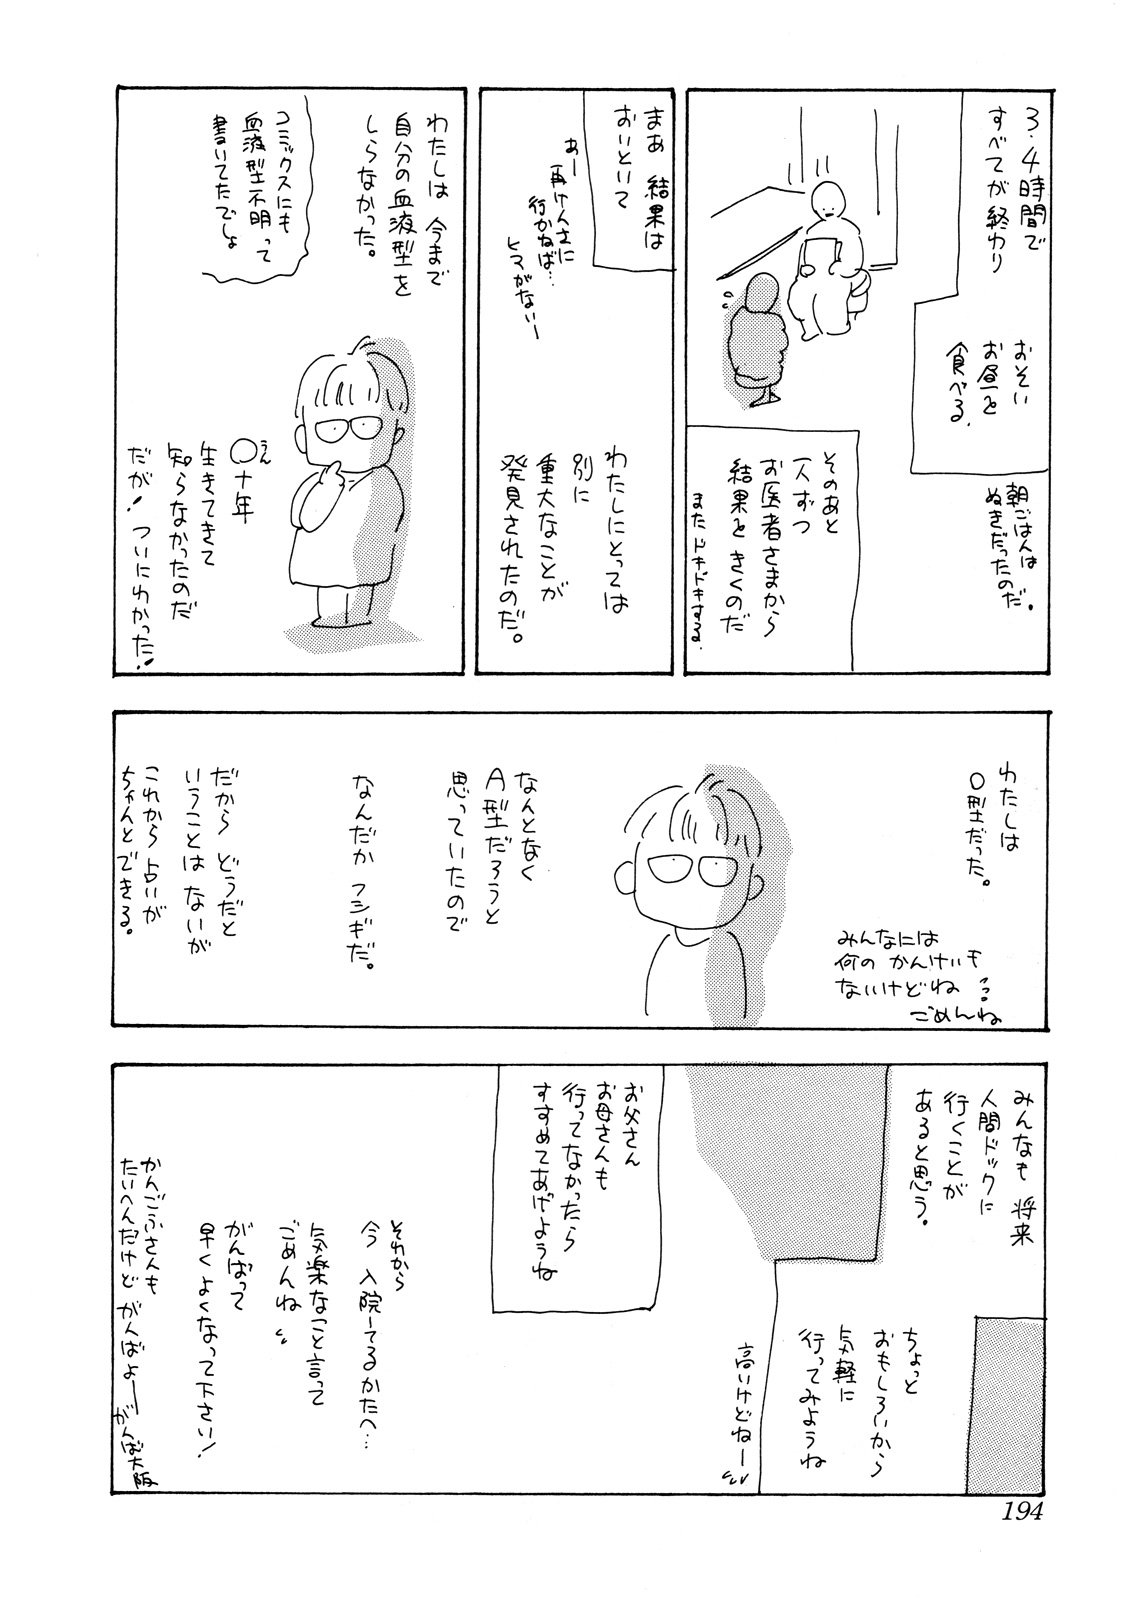 3.4時間で
すべてが終わり
おそい
お昼を
食べる.
朝ごはんは
ぬきだったのだ.
そのあと
一人ずつ
お医者さまから
結果を きくのだ
またドキドキする.
まあ 結果は
おいといて
あー
再けんさに
行かねば…
ヒマがないー
わたしにとっては
別に
重大なことが
発見されたのだ。
わたしは 今まで
自分の血液型を
しらなかった。
コミックスにも
血液型不明って
書いてたでしょ
〇十年
うん
生きてきて
知らなかったのだ
だが! ついにわかった!
わたしは
O型だった。
みんなには
何の かんけいも
ないけどね
ごめんね
なんとなく
A型だろうと
思っていたので
なんだか フシギだ。
だから どうだと
いうことは ないが
これから 占いが
ちゃんとできる。
みんなも 将来
人間ドックに
行くことが
あると思う。
ちょっと
おもしろいから
気軽に
行ってみようね
高いけどねー
お父さん
お母さんも
行ってなかったら
すすめてあげようね
それから
今 入院してるかたへ…
気楽なこと言って
ごめんね
がんばって
早くよくなって下さい!
かんごふさんも
たいへんだけど がんばよー がんば大阪
194